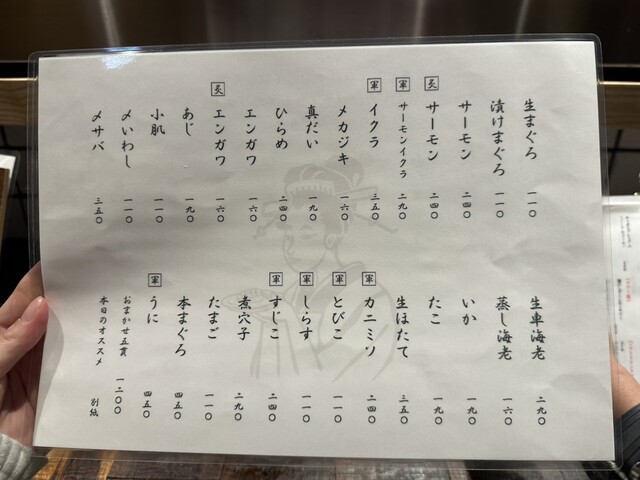 生まぐろ 一一〇
漬けまぐろ 一一〇
サーモン 二四〇
炙 サーモン 二四〇
軍 サーモンイクラ 二九〇
軍 イクラ 三五〇
メカジキ 一六〇
真だい 一九〇
ひらめ 二四〇
エンガワ 一六〇
炙 エンガワ 一六〇
あじ 一九〇
小肌 一一〇
〆いわし 一一〇
〆サバ 三五〇
生車海老 二九〇
蒸し海老 一六〇
いか 一九〇
たこ 一九〇
生ほたて 三五〇
軍 カニミソ 二四〇
軍 とびこ 一一〇
軍 しらす 一一〇
軍 すじこ 二四〇
煮穴子 二九〇
たまご 一一〇
本まぐろ 四五〇
軍 うに 四五〇
おまかせ五貫 一二〇〇
本日のオススメ 別紙